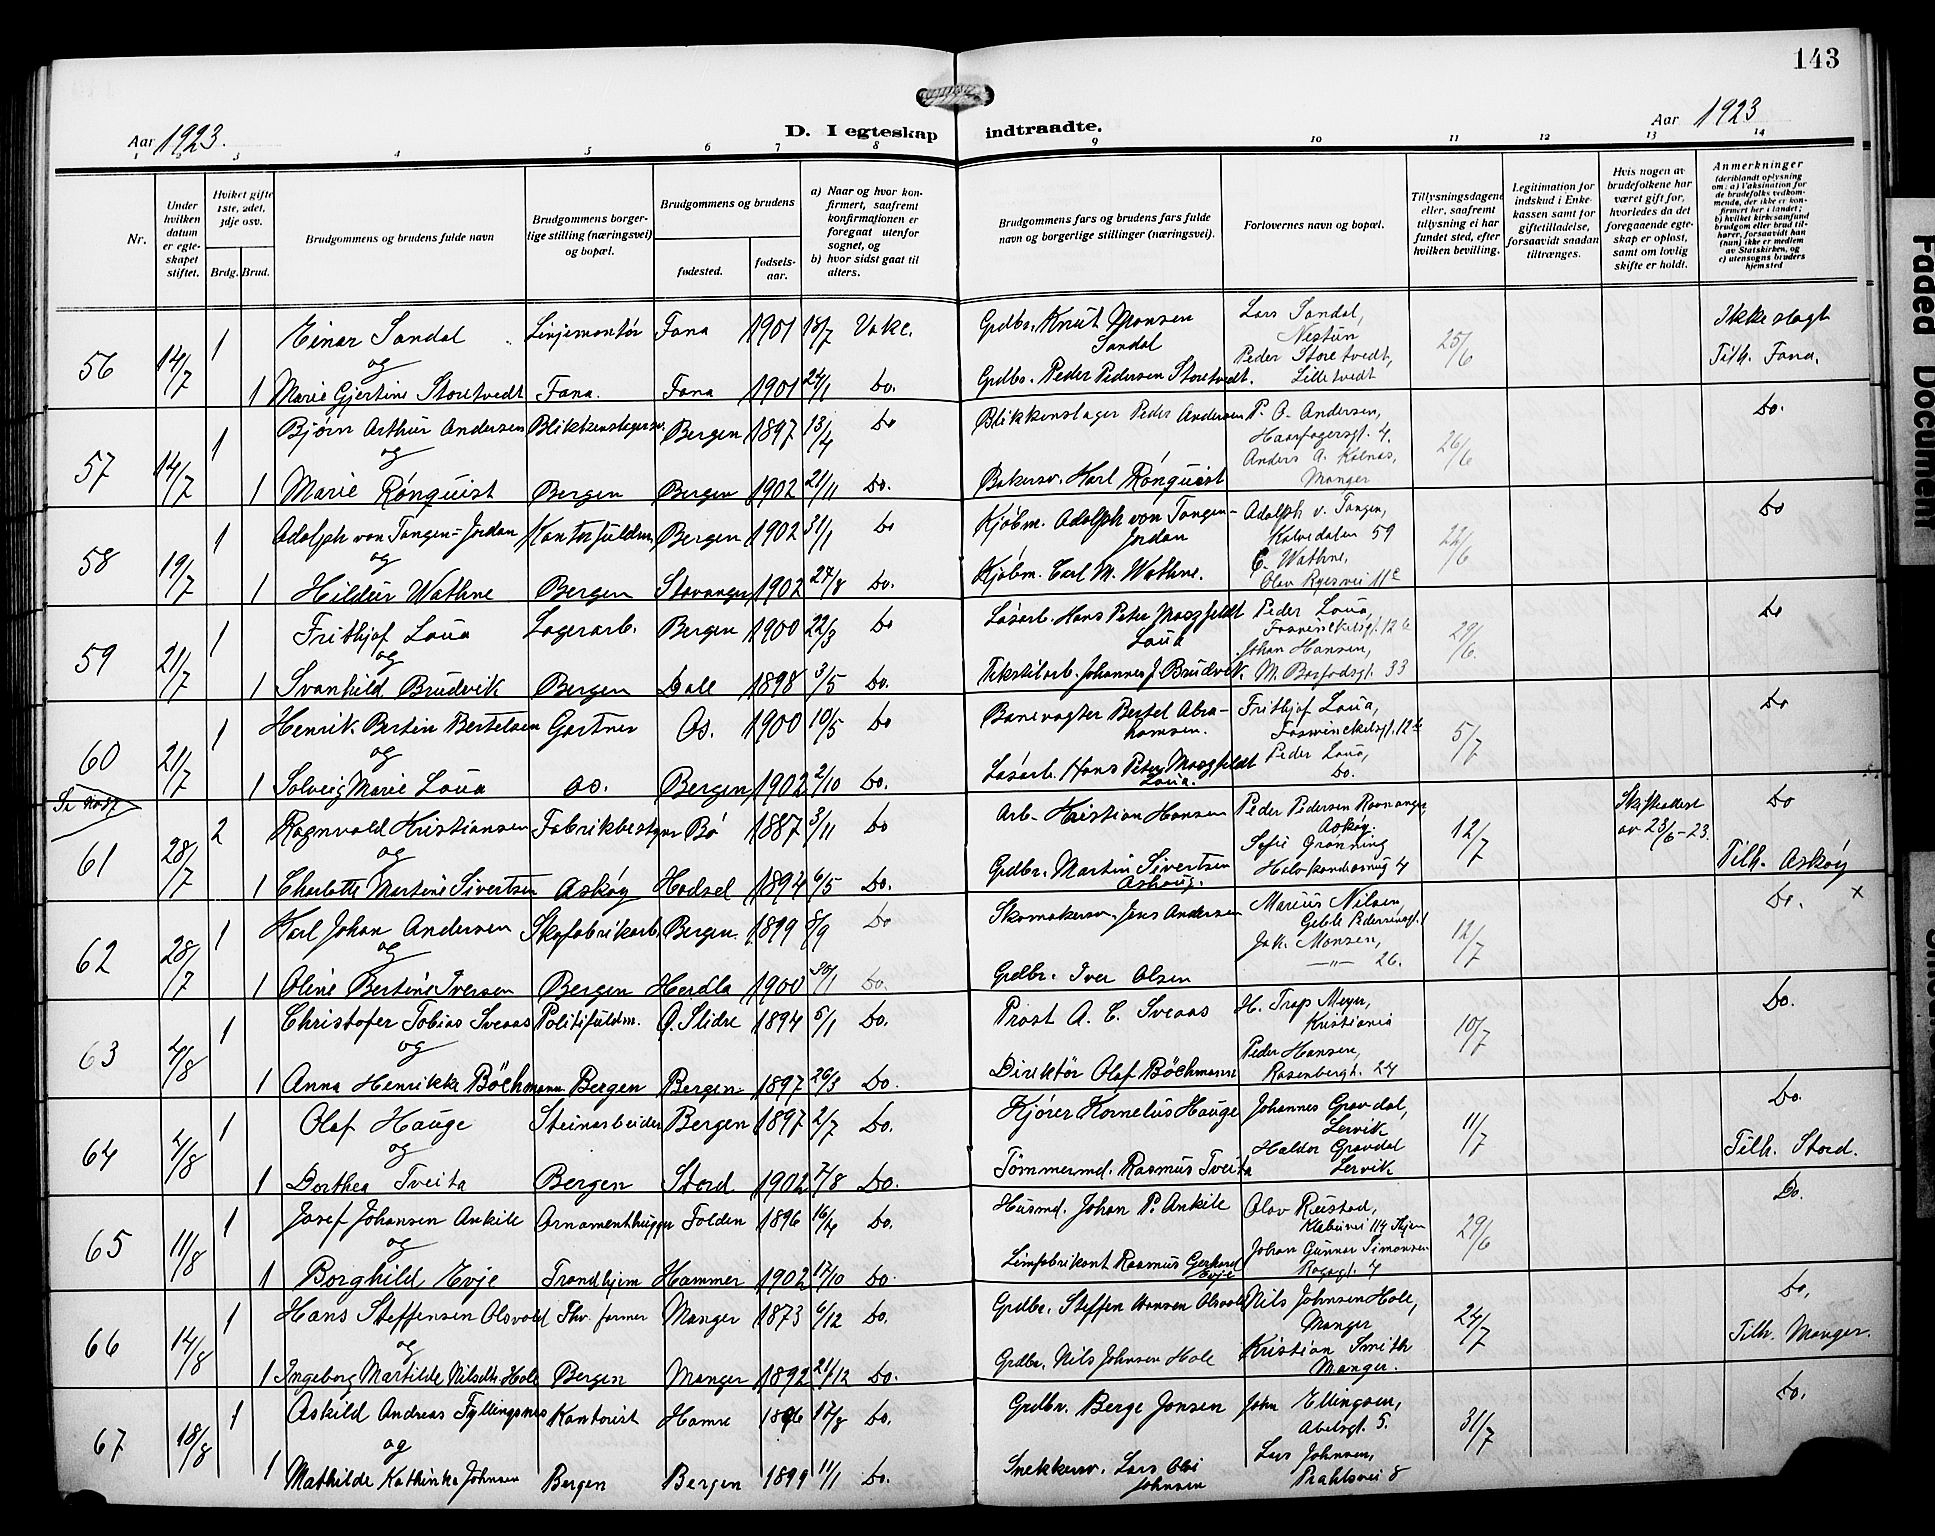 143
Aar 1923.
D. I egteskap indtraadte.
Aar 1923
1 2 3 4 5 6 7 8 9 10 11 12 13 14
Nr.
Under hvilken datum er egteskapet stiftet.
Hviket gifte 1ste, 2det, 3dje osv.
Brdg. Brud.
Brudgommens og brudens fulde navn
Brudgommens borgerlige stilling (næringsvei) og bopæl.
Brudgommens og brudens
fødested.
fødselsaar.
a) Naar og hvor konfirmert, saafremt konfirmationen er foregaat utenfor sognet, og
b) hvor sidst gaat til alters.
Brudgommens fars og brudens fars fulde navn og borgerlige stillinger (næringsvei).
Forlovernes navn og bopæl.
Tillysningsdagene eller, saafremt tillysning ei har fundet sted, efter hvilken bevilling.
Legitimation for indskud i Enkekassen samt for giftetilladelse, forsaavidt saadan tiltrænges.
Hvis nogen av brudefolkene har været gift for, hvorledes da det foregaaende egteskap er opløst, samt om lovlig skifte er holdt.
Anmerkninger
(deriblandt oplysning om: a) Vaksination for de brudefolks vedkommende, der ikke er konfirmert her i landet; b) hvilket kirkesamfund brudgom eller brud tilhører, forsaavidt han (hun) ikke er medlem av Statskirken, og c) utensogns bruders hjemsted
56 14/7 1 Einar Sandal Linjemontør Fana 1901 18/7 Vakc. Grdbr. Knut Monsen Sandal Lars Sandal, Nestun 25/6 Ikke slegt
og Peder Storetvedt, Tilh. Fana.
1 Marie Gjertine Storetvedt Fana. Fana 1901 24/1 Do. Grdbr. Peder Pedersen Storetvedt. Lilletvedt
57 14/7 1 Bjørn Arthur Andersen Blikkenslagersv. Bergen 1897 13/4 Do Blikkenslager Peder Andersen P. A. Andersen, Haarfagersgt. 4. 26/6 Do.
og Anders A. Kolnas,
1 Marie Rønquist Bergen Bergen 1902 21/11 Do. Bakersv. Karl Rønquist Manger
58 19/7 1 Adolph von Tangen-Jordan Kontorfuldm. Bergen 1902 31/1 Do Kjøbm. Adolph von Tangen-Jordan Adolph v. Tangen, Kalvedalen 59 22/6 Do
og C. Wathne,
1 Hildur Wathne Bergen Stavanger 1902 24/8 Do. Kjøbm. Carl M. Wathne. Olav Ryesvei 11c
59 21/7 1 Frithjof Loua Lagerarb. Bergen 1900 22/3 Do Løsarb. Hans Peter Mosgfeldt Loua Peder Loua, Foswinckelsgt. 12 b 29/6. Do
og Johan Hansen,
1 Svanhild Brudvik Bergen Dale 1898 3/5 Do. Tekstilarb. Johannes J Brudvik. M. Barfodsgt. 33
60 21/7 1 Henrik Bertin Bertelsen Gartner Os. 1900 10/5 Do Banevogter Bertel Abrahamsen. Frithjof Loua, Foswinckelsgt. 12 b 5/7 Do
og Peder Loua,
1 Solveig Marie Loua Os. Bergen 1902 2/10 Do. Løsarb. Hans Peter Mosgfeldt Loua. Do.
61 28/7 2 Ragnvald Kristiansen Fabrikbestyrer Bø 1887 3/11 Do Arb. Kristian Hansen Peder Pedersen Askøy. 12/7 Skifteattest av 23/6-23. Do
og Sofie Grønning
1 Charlotte Martine Sivertsen Askøy Hadsel 1894 6/5 Do. Grdbr. Martin Sivertsen Askøy. Tilh. Askøy
62 28/7 1 Karl Johan Andersen Skofabrikarb. Bergen. 1899 8/9 Do Skomakersv. Jens Andersen Marius Nilsen, Geble Pedersensgt. 12/7 Do. x
og Jak. Monsen,
1 Oline Bertine Iversen Bergen Herdla 1900 30/1 Do. Grdbr. Iver Olsen —"— 26.
63 4/8 1 Christofer Tobias Sveaas Politifuldm. Ø. Slidre 1894 5/1 Do. Prost A. C. Sveaas H. Trap Meyer, Kristiania 10/7 Do.
og Peder Hansen,
1 Anna Henrikke Böchmann Bergen Bergen 1897 26/3 Do. Direktør Olaf Böchmann Rosenbergt. 24
64 4/8 1 Olaf Hauge Steinarbeider Bergen 1897 2/7 Do. Kjører Kornelius Hauge Johannes Gravdal, Lervik 11/7 Do.
og Haldor Gravdal
1 Dorthea Tveita Bergen Stord 1902 7/8 Do. Tømmermd. Rasmus Tveita Lervik Tilh. Stord.
65 11/8 1 Josef Johansen Ankile Ornamenthugger Folden 1896 16/4 Do. Husmd. Johan P. Ankile Olav Rustad, Klabuvei 114 29/6 Do.
og Johan Gunnar Simonsen
1 Borghild Evje Trondhjem Hammer 1902 17/10 Do. Limfabrikant Rasmus Gerhard Evje
66 14/8 1 Hans Steffensen Olsvold Fhv. farmer Manger 1873 6/12 Do. Grdbr. Steffen Hansen Olsvold Nils Johnsen Hole, Manger 24/7 Do.
og Kristian Smith
1 Ingeborg Martilde Nilsdtr. Hole Bergen Manger 1892 21/12 Do. Grdbr. Nils Johnsen Hole Manger. Tilh. Manger.
67 18/8 1 Askild Andreas Fyllingsnes Kontorist Hamre 1896 17/8 Do. Grdbr. Berge Jonsen John Ellingsen, Abelsgt. 5. 31/7 Do.
og Lars Johnsen,
1 Mathilde Kathinka Johnsen Bergen Bergen 1899 11/1 Do. Snekkersv. Lars Olai Johnsen Prahlsvei 8
Faded Document